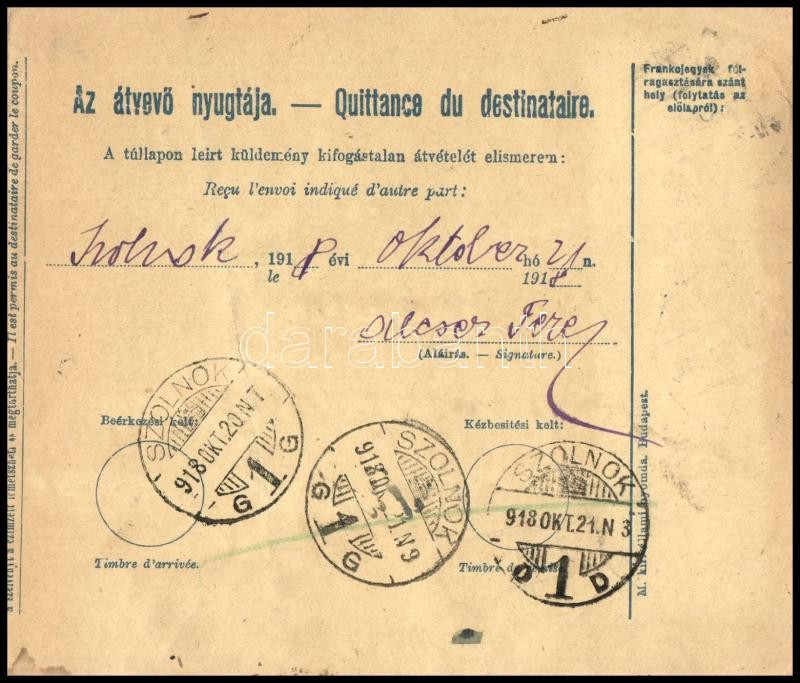 Az átvevő nyugtája. — Quittance du destinataire.
A túllapon leirt küldemény kifogástalan átvételét elismerem:
Reçu l'envoi indiqué d'autre part:
Szolnok, 1918 évi Oktober hó 21 n.
le 1918
(Aláirás. — Signature.)
Beérkezési kelt:
Kézbesitési kelt:
Timbre d'arrivée.
Timbre de
SZOLNOK
918 OKT. 20. N 7
G 1 G
SZOLNOK
918 21. N 9
G 1 G
SZOLNOK
918 OKT. 21. N 3
D 1 D
Frankojegyek föl-
ragasztására szánt
hely (folytatás az
előlapról):
M. kir. állami nyomda. Budapest.
megtarthatja. — Il est permis au destinataire de garder le coupon.
darabanth